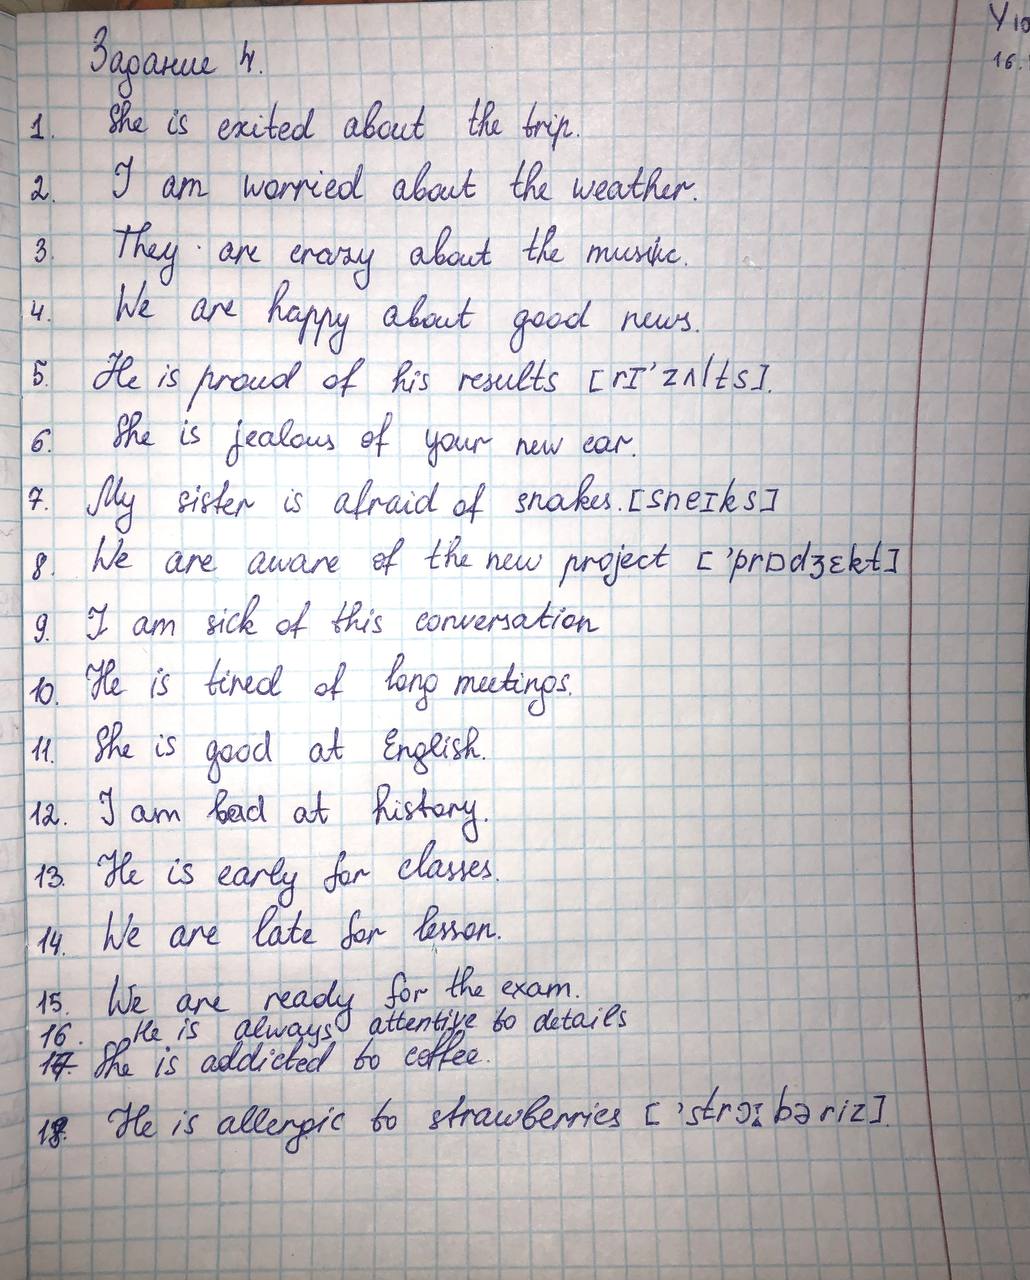 Задание 4.
1. She is exited about the trip.
2. I am worried about the weather.
3. They are crazy about the music.
4. We are happy about good news.
5. He is proud of his results [rɪ'zʌlts].
6. She is jealous of your new car.
7. My sister is afraid of snakes. [sneɪks]
8. We are aware of the new project ['prɒdʒɛkt]
9. I am sick of this conversation
10. He is tired of long meetings.
11. She is good at English.
12. I am bad at history.
13. He is early for classes.
14. We are late for lesson.
15. We are ready for the exam.
16. He is always attentive to details
17. She is addicted to coffee.
18. He is allergic to strawberries ['strɔːbəriz].
16.